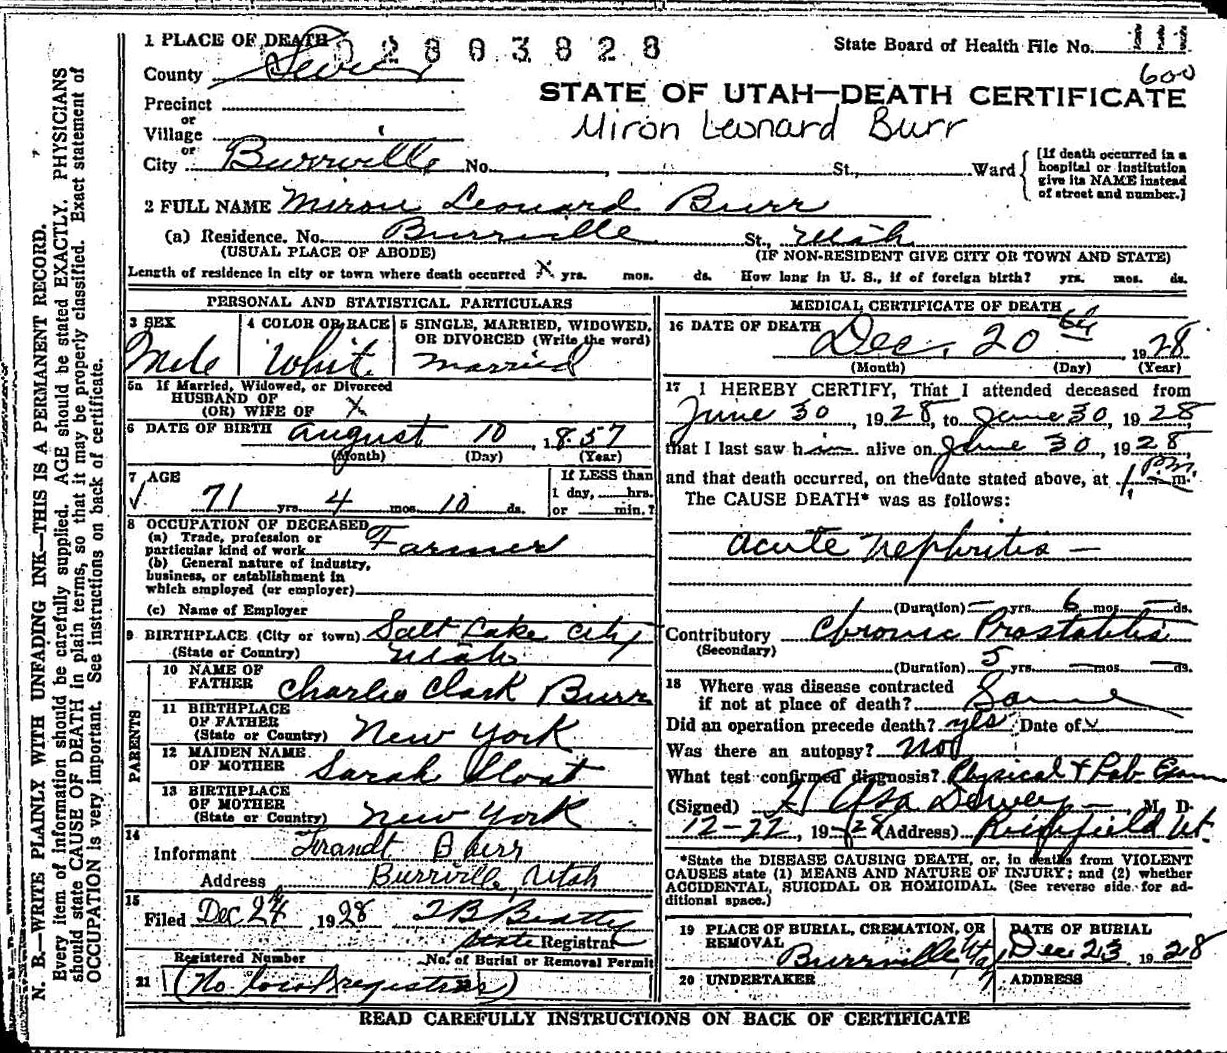 N. B.—WRITE PLAINLY WITH UNFADING INK—THIS IS A PERMANENT RECORD.
Every item of information should be carefully supplied. AGE should be stated EXACTLY. PHYSICIANS
should state CAUSE OF DEATH in plain terms, so that it may be properly classified. Exact statement of
OCCUPATION is very important. See instructions on back of certificate.
1 PLACE OF DEATH 02803828 State Board of Health File No. 111
County Sevier 600
STATE OF UTAH—DEATH CERTIFICATE
Precinct
or
Miron Leonard Burr
Village
or
City Burrville No. St., Ward
[If death occurred in a
hospital or institution
give its NAME instead
of street and number.]
2 FULL NAME Miron Leonard Burr
(a) Residence. No. Burrville St., Utah
(USUAL PLACE OF ABODE) (IF NON-RESIDENT GIVE CITY OR TOWN AND STATE)
Length of residence in city or town where death occurred X yrs. mos. ds. How long in U. S., if of foreign birth? yrs. mos. ds.
PERSONAL AND STATISTICAL PARTICULARS
3 SEX 4 COLOR OR RACE 5 SINGLE, MARRIED, WIDOWED,
OR DIVORCED (Write the word)
Male White married
5a If Married, Widowed, or Divorced
HUSBAND OF
(OR) WIFE OF X
6 DATE OF BIRTH August 10 1857
(Month) (Day) (Year)
7 AGE If LESS than
1 day, hrs.
71 yrs. 4 mos. 10 ds. or min.?
8 OCCUPATION OF DECEASED
(a) Trade, profession or
particular kind of work Farmer
(b) General nature of industry,
business, or establishment in
which employed (or employer)
(c) Name of Employer
9 BIRTHPLACE (City or town) Salt Lake City
(State or Country) Utah
PARENTS
10 NAME OF
FATHER Charlie Clark Burr
11 BIRTHPLACE
OF FATHER
(State or Country) New York
12 MAIDEN NAME
OF MOTHER Sarah Sloat
13 BIRTHPLACE
OF MOTHER
(State or Country) New York
14
Informant Burr
Address Burrville, Utah
15
Filed Dec 24 1928 T B Beatty
State Registrar
Registered Number No. of Burial or Removal Permit
21 (No local registrar)
MEDICAL CERTIFICATE OF DEATH
16 DATE OF DEATH Dec. 20th, 1928
(Month) (Day) (Year)
17 I HEREBY CERTIFY, That I attended deceased from
June 30, 1928, to June 30, 1928,
that I last saw him alive on June 30, 1928
and that death occurred, on the date stated above, at 1 P.M. m.
The CAUSE DEATH* was as follows:
acute nephritis —
(Duration) — yrs. 6 mos. — ds.
Contributory Chronic Prostatitis
(Secondary)
(Duration) 5 yrs. — mos. — ds.
18 Where was disease contracted
if not at place of death? Same
Did an operation precede death? yes Date of
Was there an autopsy? No
What test confirmed diagnosis? Physical & Lab Exam
(Signed) Asa Dewey — M. D.
12-22, 1928 (Address) Richfield Ut.
*State the DISEASE CAUSING DEATH, or, in deaths from VIOLENT
CAUSES state (1) MEANS AND NATURE OF INJURY; and (2) whether
ACCIDENTAL, SUICIDAL OR HOMICIDAL. (See reverse side for ad-
ditional space.)
19 PLACE OF BURIAL, CREMATION, OR DATE OF BURIAL
REMOVAL
Burrville, Utah Dec 23 1928
20 UNDERTAKER ADDRESS
READ CAREFULLY INSTRUCTIONS ON BACK OF CERTIFICATE